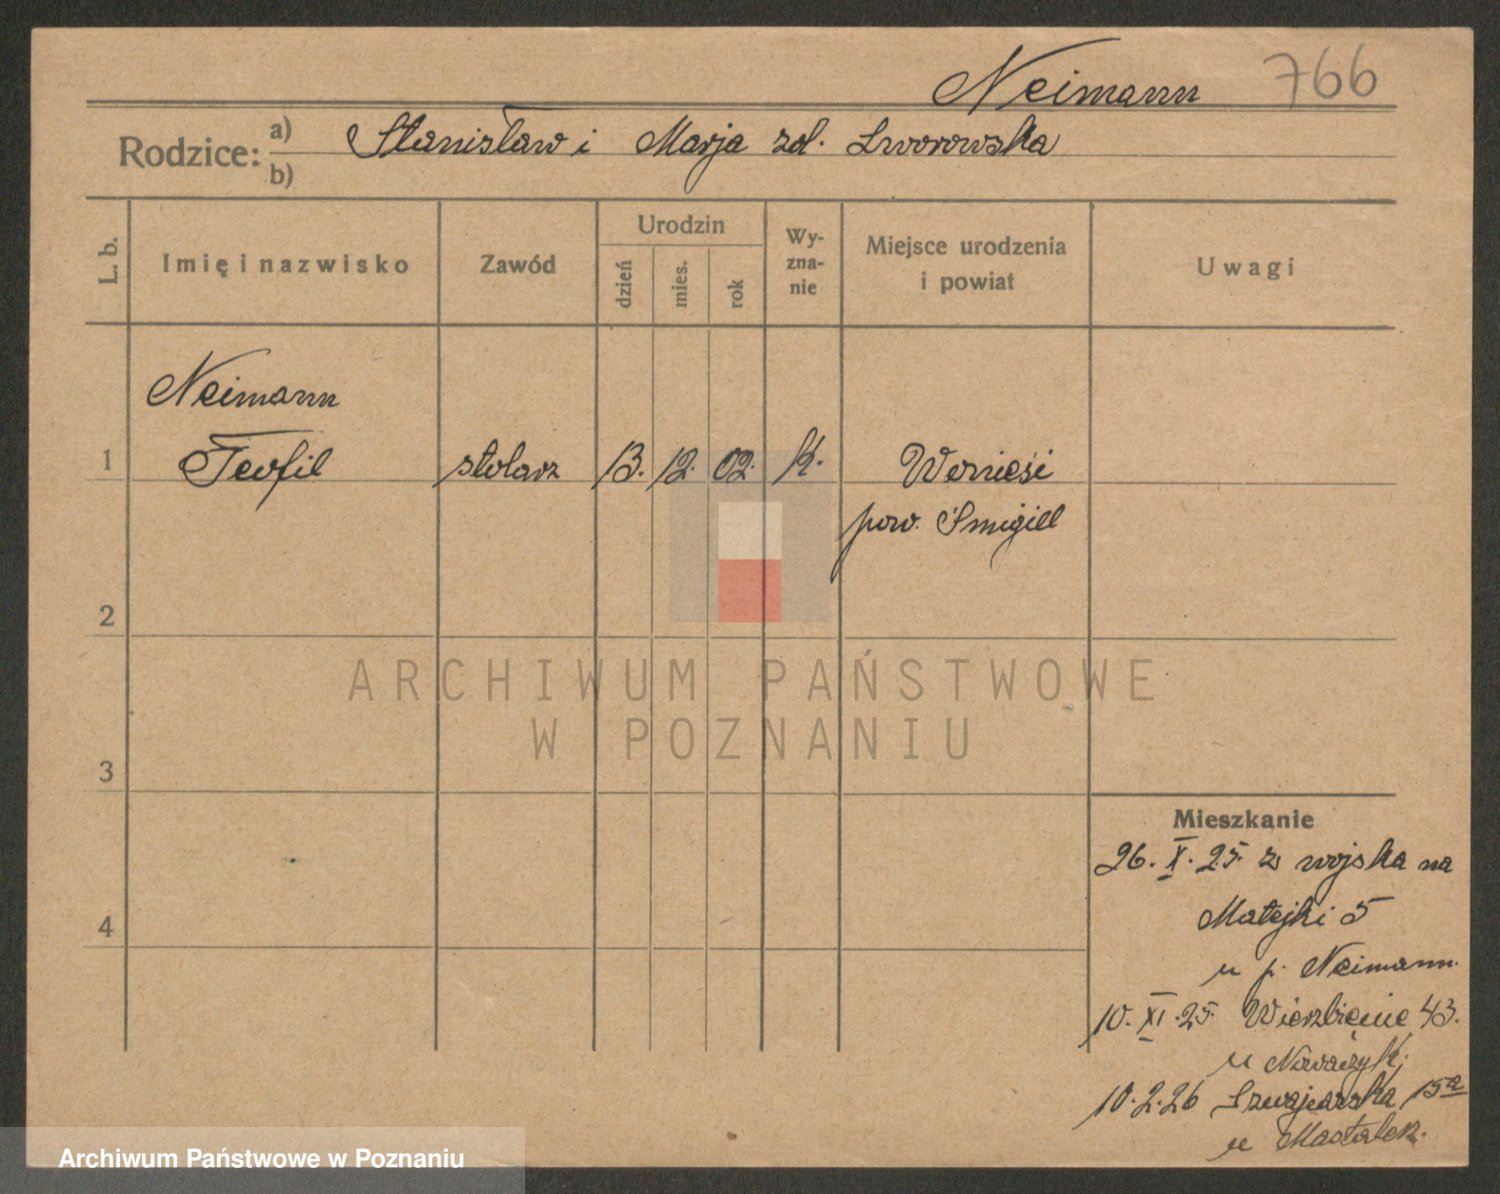 Neimann 766
Rodzice: a) b) Stanisław i Marja zd. Lworowska
L. b. Imię i nazwisko Zawód Urodzin dzień mies. rok Wy-zna-nie Miejsce urodzenia i powiat Uwagi
Neimann
1 Teofil stolarz 13. 12. 02. k.
pow. Śmigiel
2
ARCHIWUM PAŃSTWOWE
W POZNANIU
3
Mieszkanie
26. X. 25. z wojska na
4 Matejki 5
u p. Neimann.
10. XI. 25. Wierzbięcie 43.
u Nowaczyk.
10. 2. 26 Szwajcarska 15a
u Mastalerz.
Archiwum Państwowe w Poznaniu